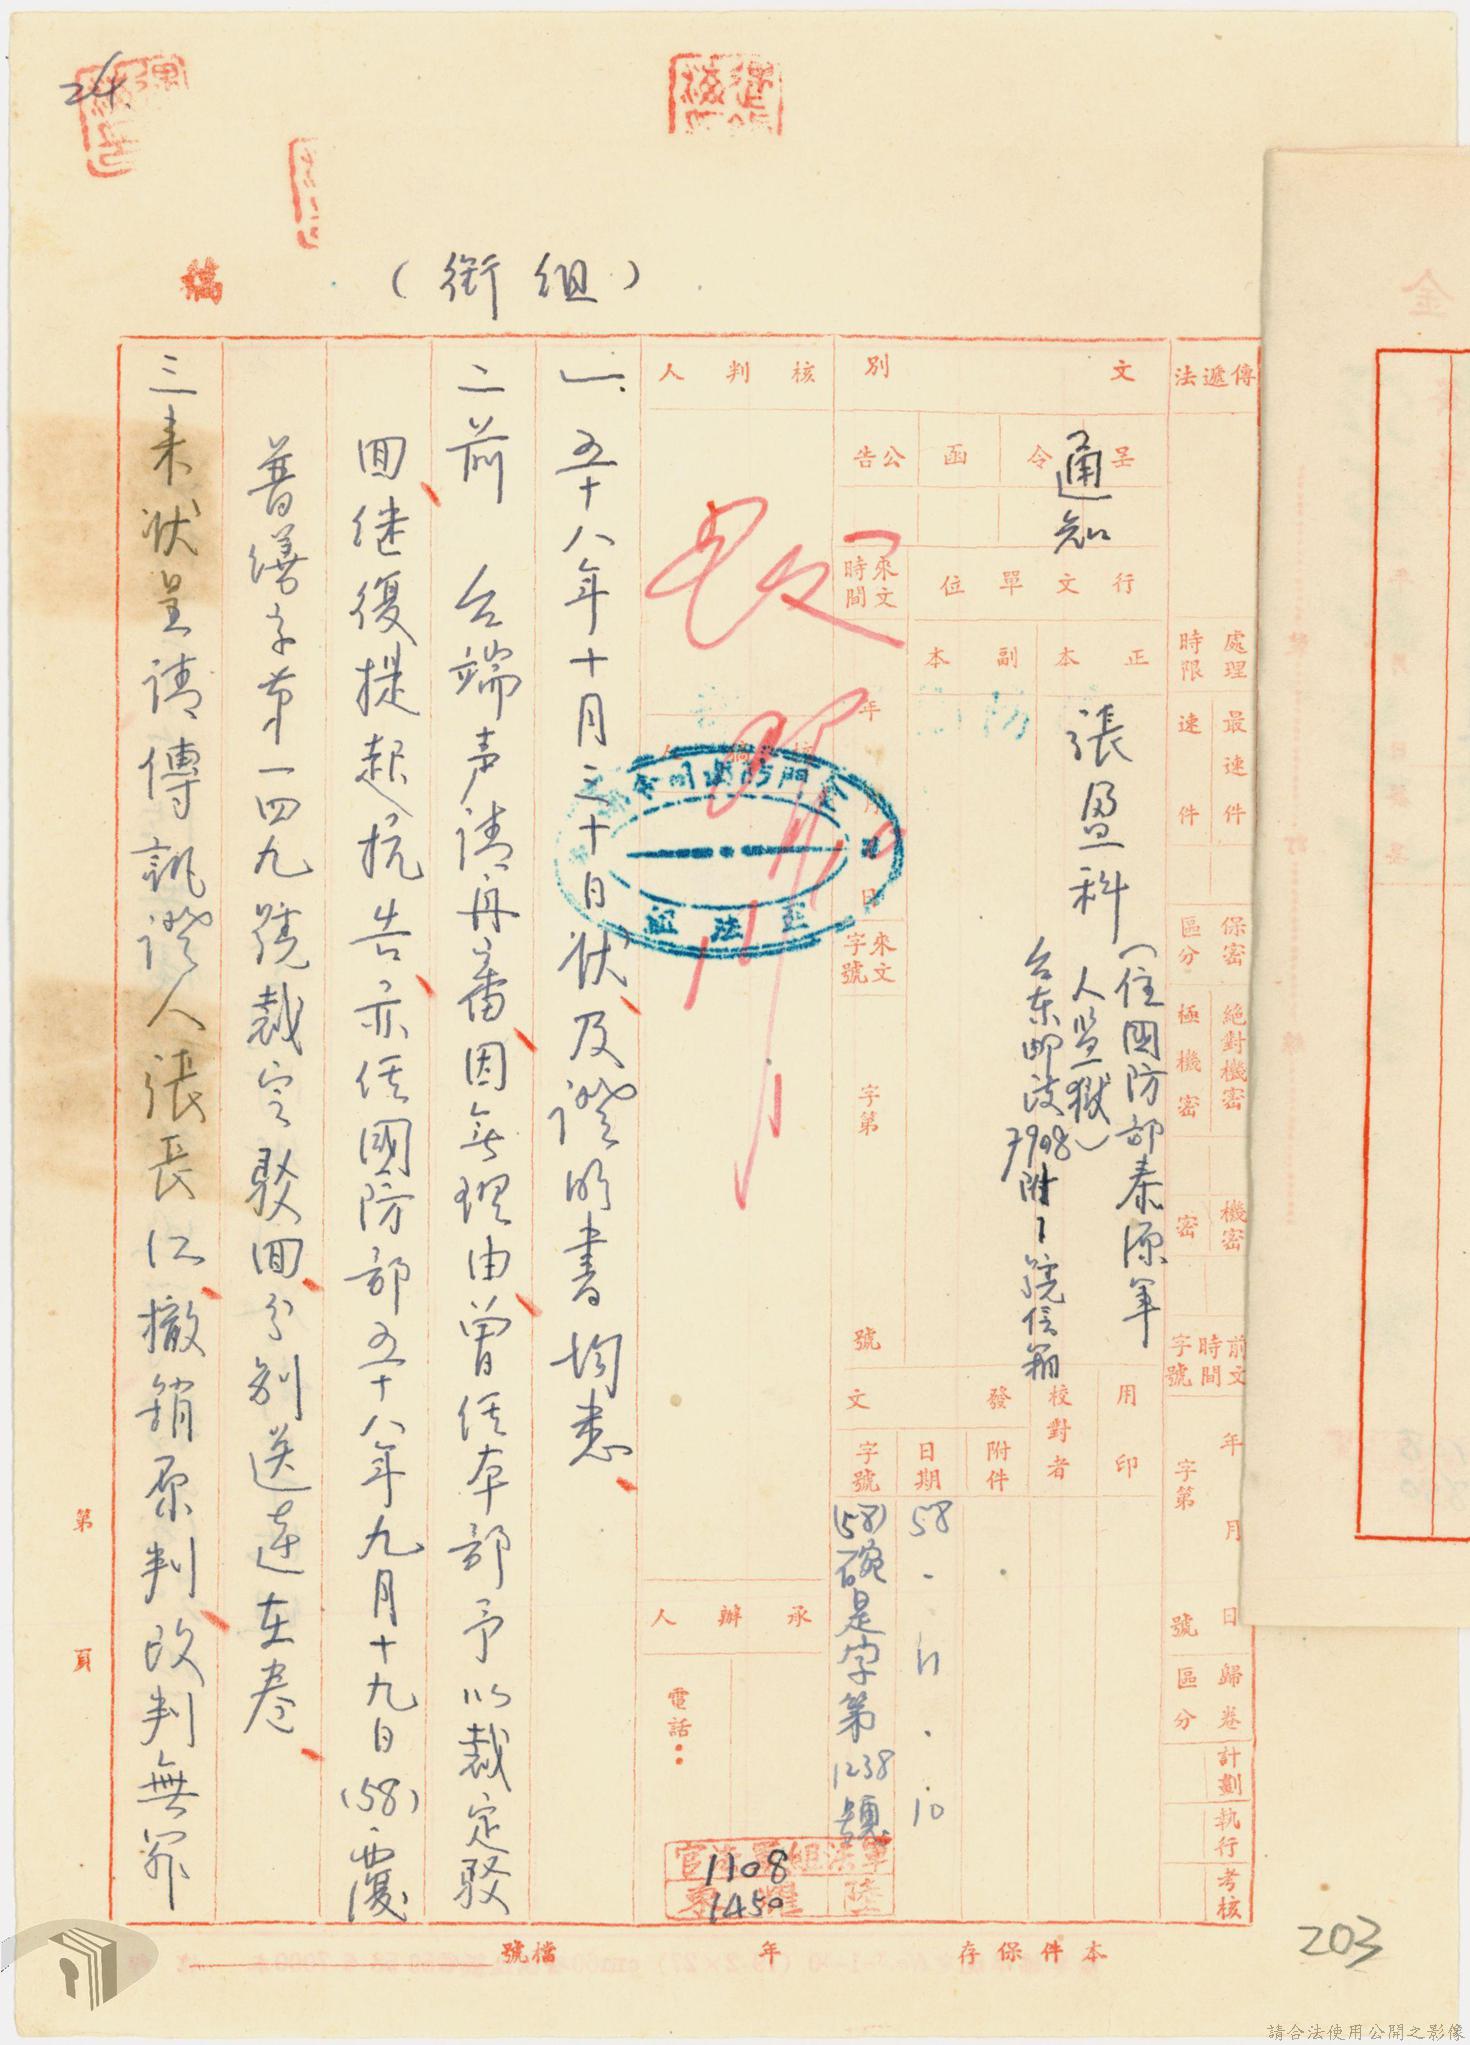 24
(銜組)
稿
傳遞法
處理時限
最速件
速件
保密區分
絕對機密
極機密
機密
密
前文時間字號
年
月
日
字第
號
歸卷區分
計劃
執行
考核
文別
呈
令
函
公告
通知
行文單位
正本
副本
張盈科
(住國防部泰源軍
人監獄)
台東郵政7908附1號信箱
用印
校對者
發文
附件
日期
字號
58.11.10
(58)碗是字第1238號
來文時間
年
月
日
來文字號
字第
號
核判人
承辦人
電話:
軍法組軍法官
1108
1450
軍法組
一、五十八年十月二十日狀及證明書均悉
二前 台端声請再審因無理由曾經本部予以裁定駁
回继復提起抗告亦經國防部五十八年九月十九日(58)覆
普繕字第一四九號裁定駁回分別送達在卷
三來狀呈請傳訊證人張長江撤銷原判改判無罪
第
頁
本件保存
年
檔號
203
請合法使用公開之影像